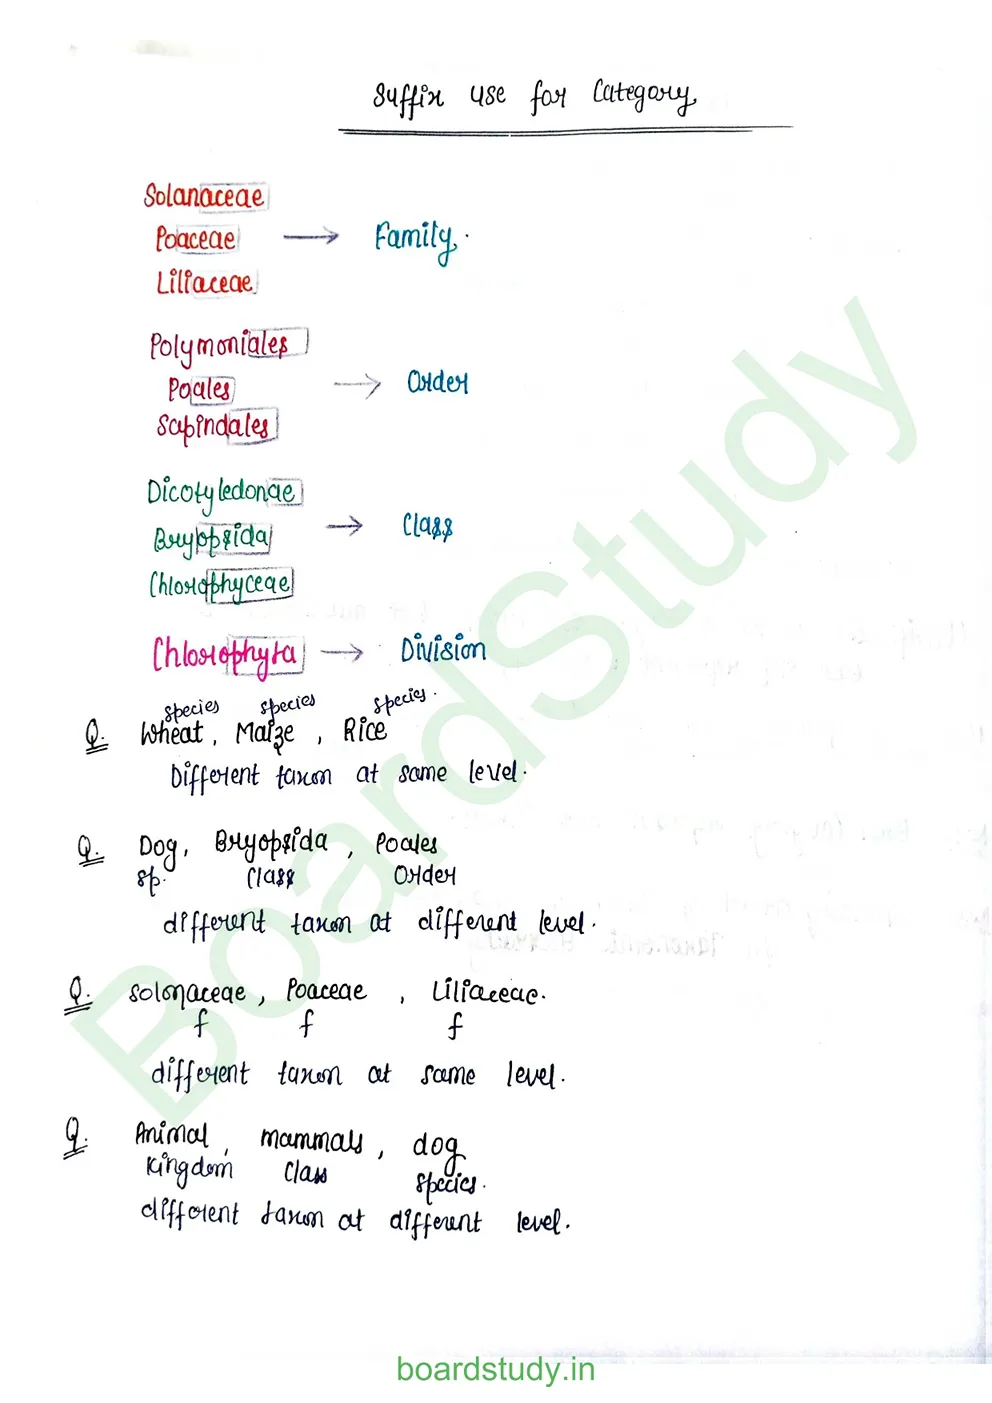 Suffix use for Category
Solanaceae
Poaceae → Family.
Liliaceae
Polymoniales
Poales → Order
Sapindales
Dicotyledonae
Bryopsida → Class
Chlorophyceae
Chlorophyta → Division
species species species.
Q. Wheat, Maize, Rice
Different taxon at same level.
Q. Dog, Bryopsida, Poales
sp. Class Order
different taxon at different level.
Q. Solanaceae, Poaceae, Liliaceae.
f f f
different taxon at same level.
Q. Animal, mammals, dog
Kingdom Class species.
different taxon at different level.
BoardStudy
boardstudy.in